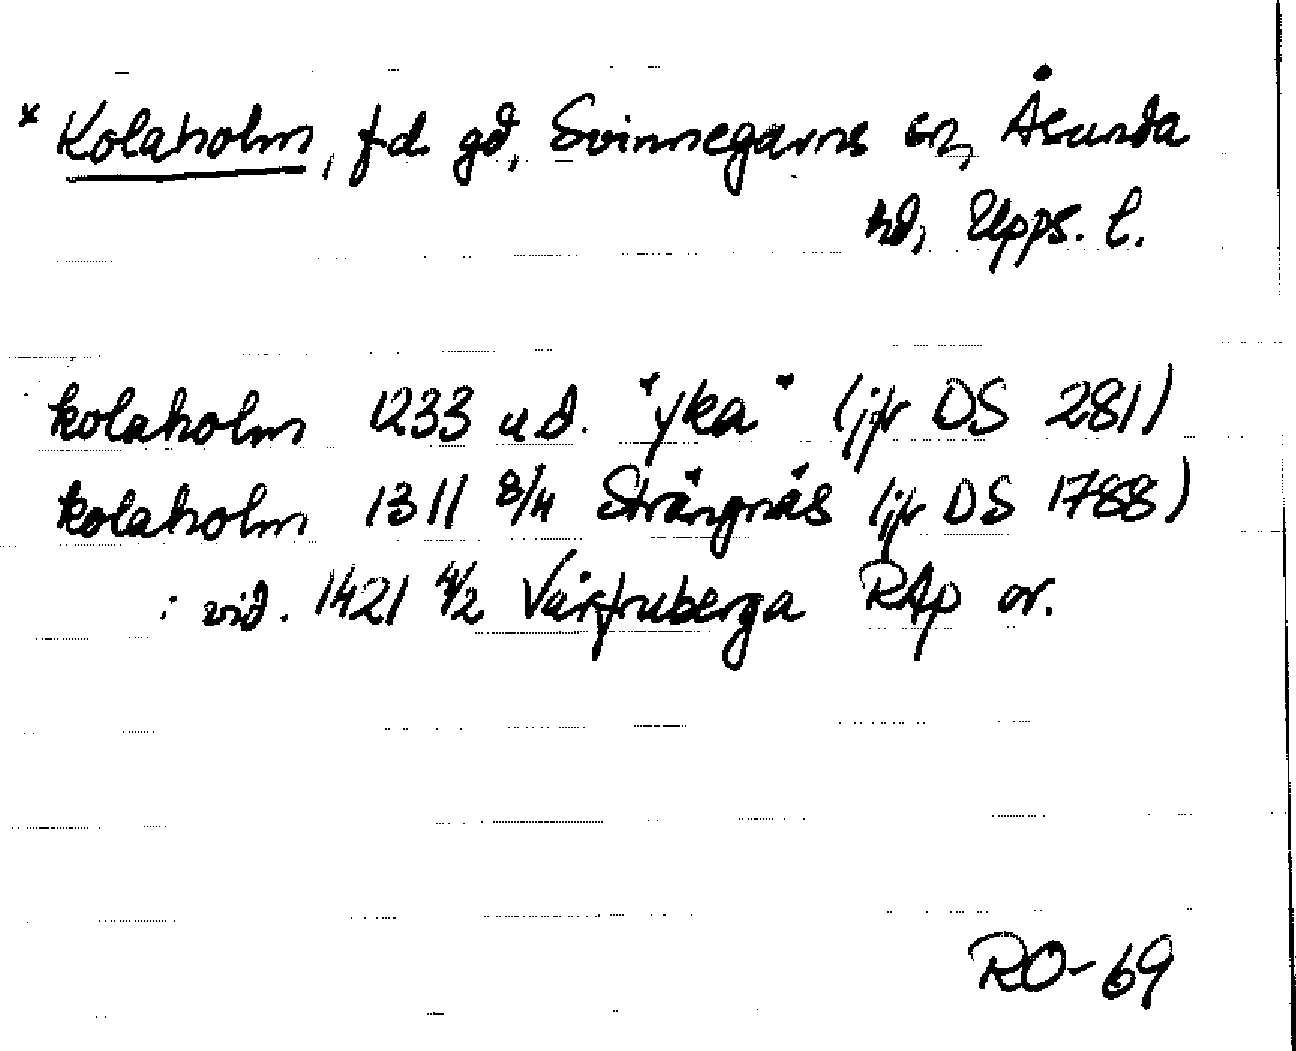 * Kolaholm, f.d. gd, Svinnegarns sn, Åsunda
hd, Upps. l.
kolaholm 1233 u.d. "yka" (jfr DS 281)
kolaholm 1311 8/4 Strängnäs (jfr DS 1788)
: vid. 1421 4/2 Vårfruberga RAp or.
RO-69